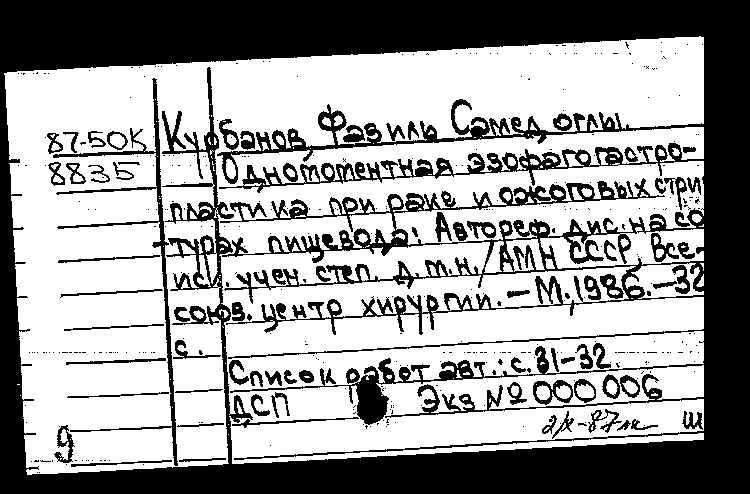 87-50К Курбанов, Фазиль Самед оглы.
8835 Одномоментная эзофагогастро-
пластика при раке и ожоговых стри
турах пищевода: Автореф. дис. на со
иск. учен. степ. д.м.н. / АМН СССР, Все-
союз. центр хирургии. – М., 1986. – 32
с.
Список работ авт.: с. 31-32.
ДСП Экз № 000006
9